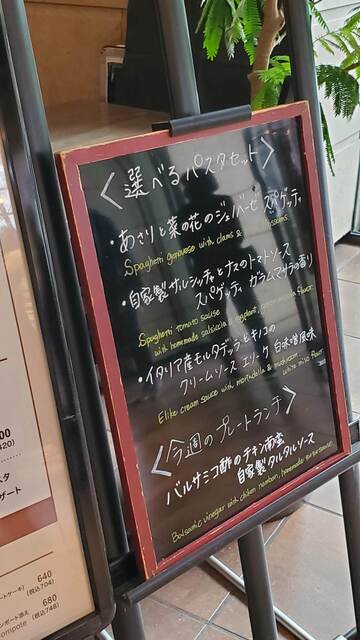 <選べるパスタセット>
・あさりと菜の花のジェノベーゼ スパゲッティ
Spaghetti genovese with clams & blossoms
・自家製サルシッチャとナスのトマトソース
スパゲッティ ガラムマサラの香り
Spaghetti tomato sauce
with homemade salsiccia & eggplant, garam masala flavor
・イタリア産モルタデッラとキノコの
クリームソース エリーケ 白味噌風味
Elike cream sauce with mortadella & mushroom white miso flavor
<今週のプレートランチ>
バルサミコ酢のチキン南蛮
自家製タルタルソース
Balsamic vinegar with chicken nanban, homemade tartar sauce
00
420)
スタ
ザート
ートケーキ)
640
(税込704)
ンポート添え
680
ompote
(税込748)